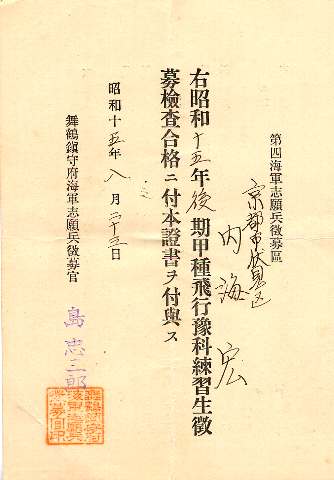 第四海軍志願兵徴募區
京都市伏見区
内海 宏
右昭和十五年後期甲種飛行豫科練習生徴
募檢査合格ニ付本證書ヲ付與ス
昭和十五年八月二十三日
舞鶴鎭守府海軍志願兵徴募官
島 忠三郎